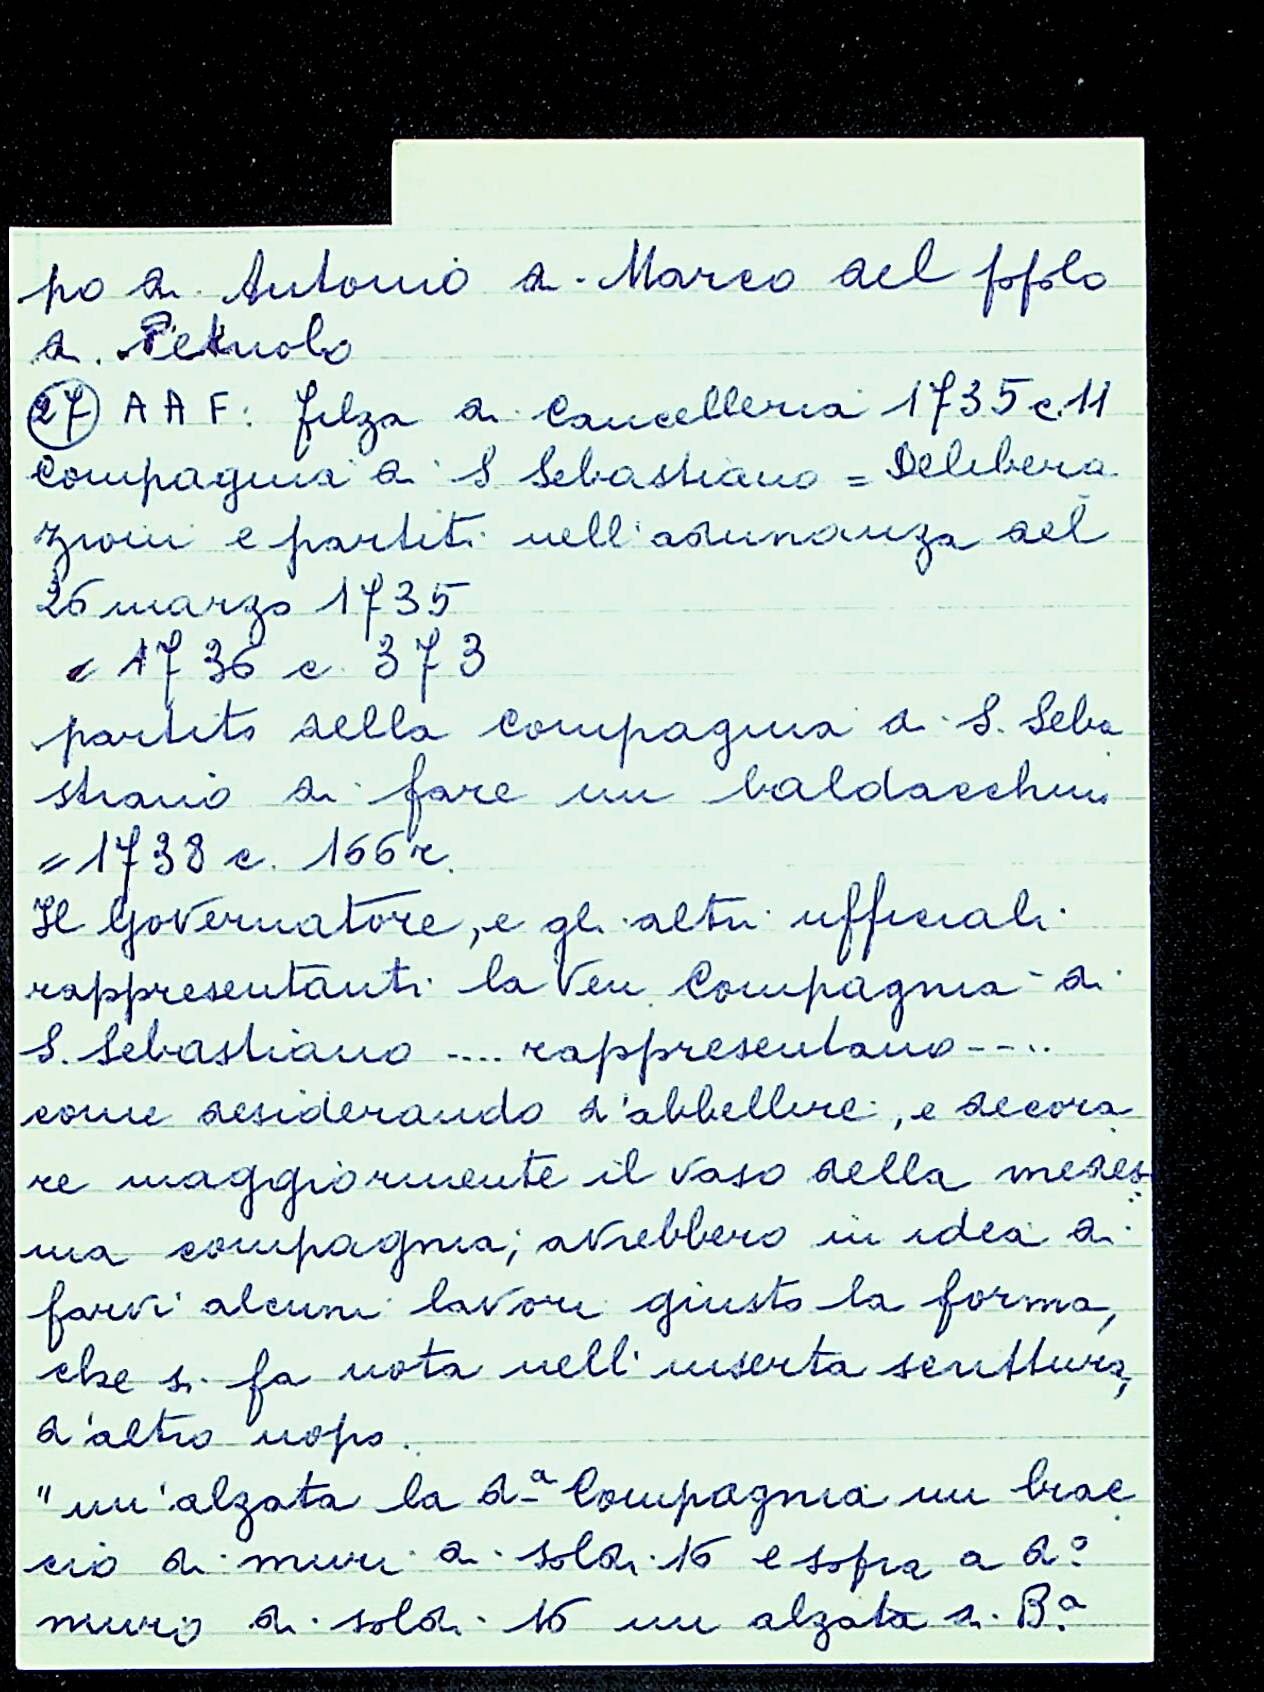 po di Antonio di Marco del popolo
di Petriolo
27 A A F: filza di Cancelleria 1735 c. 11
Compagnia di S Sebastiano = Delibera
zioni e partiti nell'adunanza del
26 marzo 1735
= 1736 c. 373
partito della compagnia di S. Seba
stiano di fare un baldacchino
= 1738 c. 166 r.
Il Governatore, e gli altri ufficiali
rappresentanti la Ven. Compagnia di
S. Sebastiano .... rappresentano ....
come desiderando d'abbellire, e decora
re maggiormente il vaso della medesi
ma compagnia; avrebbero in idea di
farvi alcuni lavori giusto la forma,
che si fa nota nell'inserta scrittura,
d'altro uopo.
"un'alzata la d.ª Compagnia un brac
cio di muri di soldi 16 e sopra a d.º
muro di soldi 16 un alzata di B.ª